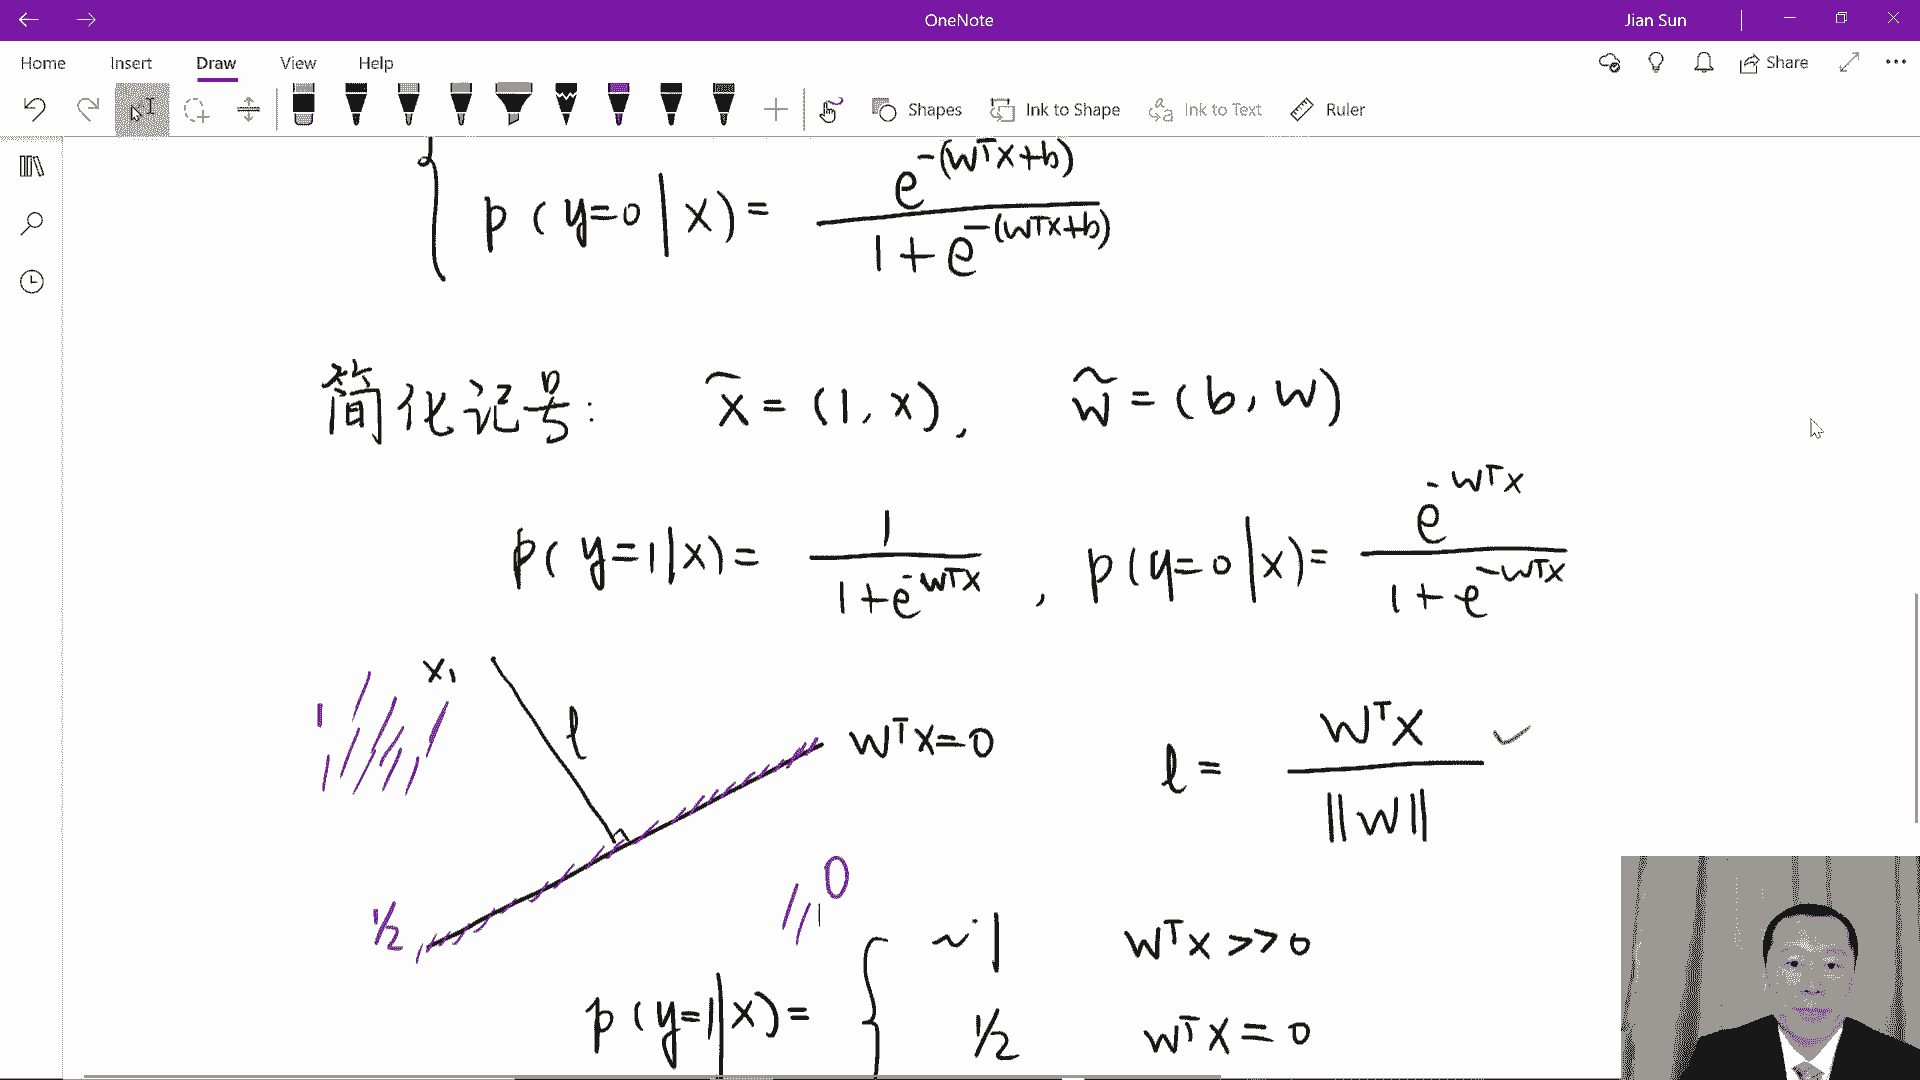 OneNote
Jian Sun
Home Insert Draw View Help
Share
Shapes Ink to Shape Ink to Text Ruler
p(y=0|x) = e^{-(wᵀx+b)} / 1+e^{-(wᵀx+b)}
简化记号: x̃ = (1, x), w̃ = (b, w)
p(y=1|x) = 1 / 1+e^{-wᵀx} , p(y=0|x) = e^{-wᵀx} / 1+e^{-wᵀx}
x₁
1
l
wᵀx=0
l = wᵀx / ||w|| ✓
0
1/2
p(y=1|x) = { ~1 wᵀx >> 0
1/2 wᵀx = 0